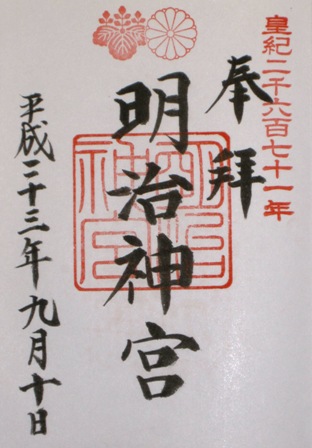 皇紀二千六百七十一年
奉拝
明治神宮
明治神宮
平成二十三年九月十日